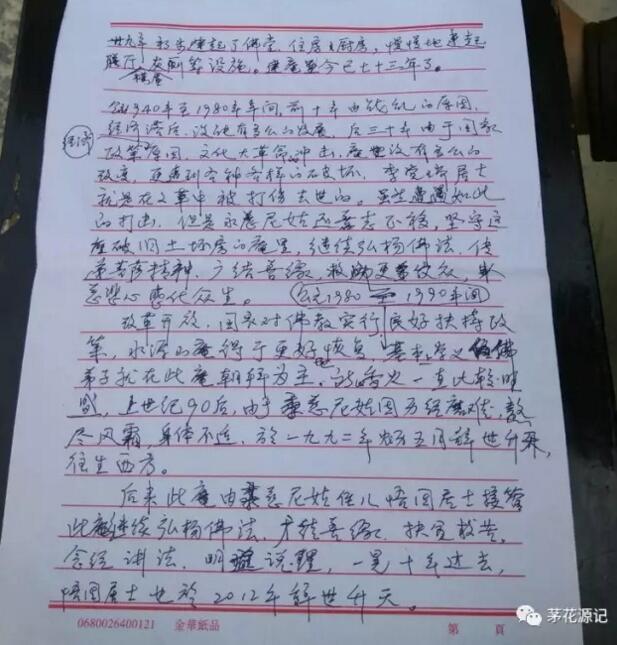 卅九年 初步建起了佛堂、住房、厨房,慢慢地建起
膳厅、灰刺等设施。建庵至今已七十三年了。
楼屋
公元1940年至1980年年间,前十年由战乱的原因,
经济滞后,没能有多么的发展,后三十年由于国家
经济
政策原因,文化大革命冲击,庵堂没有多么的
改变,更遭到各种各样的破坏,李 居士
就是在文革中被打伤去世的。虽然遭遇如此
的打击,但是永慈尼姑还矢志不移,坚守这
座破旧土坯房的庵里,继续弘扬佛法,传
承菩萨精神,广结善缘,救助
慈悲心感化众生。 公元1980—1990年间
改革开放,国家对佛教实行良好扶持政
策,永 庵得了更好恢复,基本上党义 佛
弟子就在此庵朝拜为主,香火一直比较旺
盛,上世纪90后,由于 慈尼姑因历经磨难,熬
尽风霜,身体不适,於一九九二年 五月辞世升天,
往生西方。
后来此庵由 慈尼姑侄儿悟圆居士接管
此庵继续弘扬佛法,广结善缘,扶危救苦。
念经讲法,明 说理,一晃十年过去,
悟圆居士也於2012年辞世升天。
0680026400121 金華紙品 第 頁
茅花源记